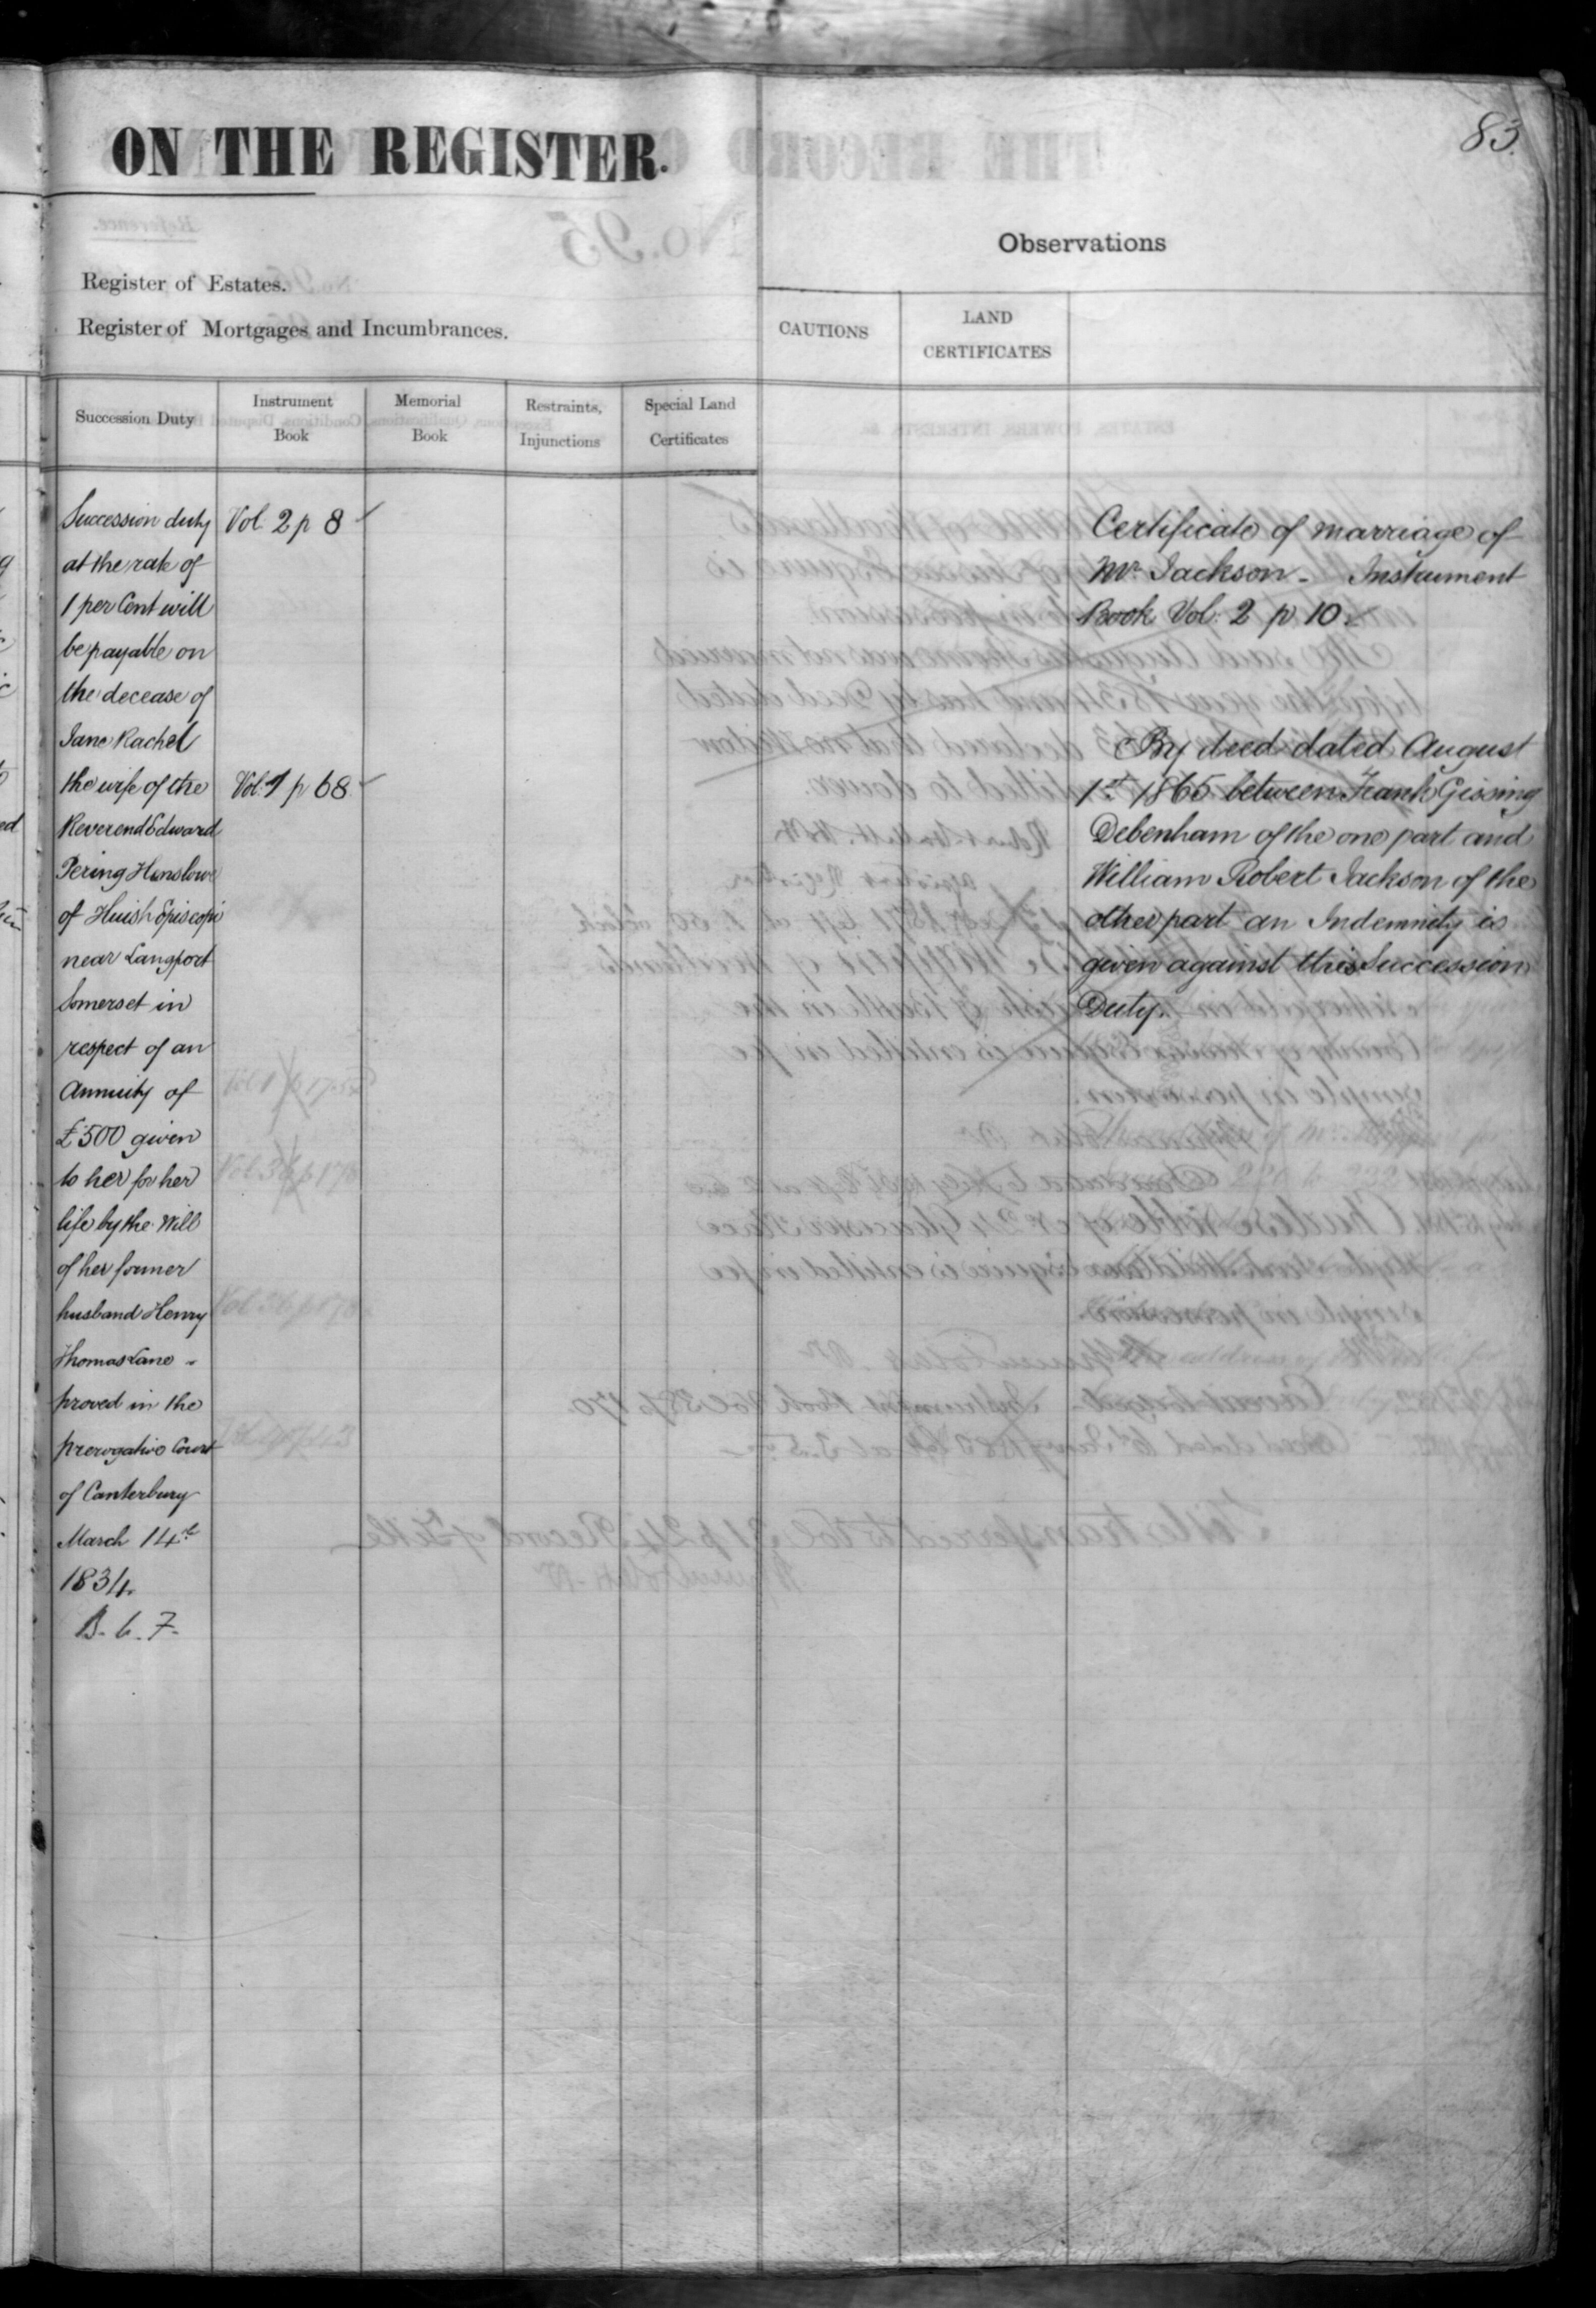 83.
ON THE REGISTER.
Observations
Register of Estates.
Register of Mortgages and Incumbrances.
CAUTIONS
LAND
CERTIFICATES
Succession Duty
Instrument
Book
Memorial
Book
Restraints,
Injunctions
Special Land
Certificates
Succession duty
at the rate of
1 per Cent will
be payable on
the decease of
Jane Rachel
the wife of the
Reverend Edward
Pering Henslowe
of Huish Episcopi
near Langport
Somerset in
respect of an
Annuity of
£500 given
to her for her
life by the Will
of her former
husband Henry
Thomas Lane -
proved in the
prerogative Court
of Canterbury
March 14th
1834.
B. 6. 7.
Vol. 2 p 8
Vol. 1 p 68
Certificate of marriage of
Mr. Jackson - Instrument
Book Vol: 2 p 10.
By deed dated August
1st 1865 between Frank Gissing
Debenham of the one part and
William Robert Jackson of the
other part an Indemnity is
given against this Succession
Duty.